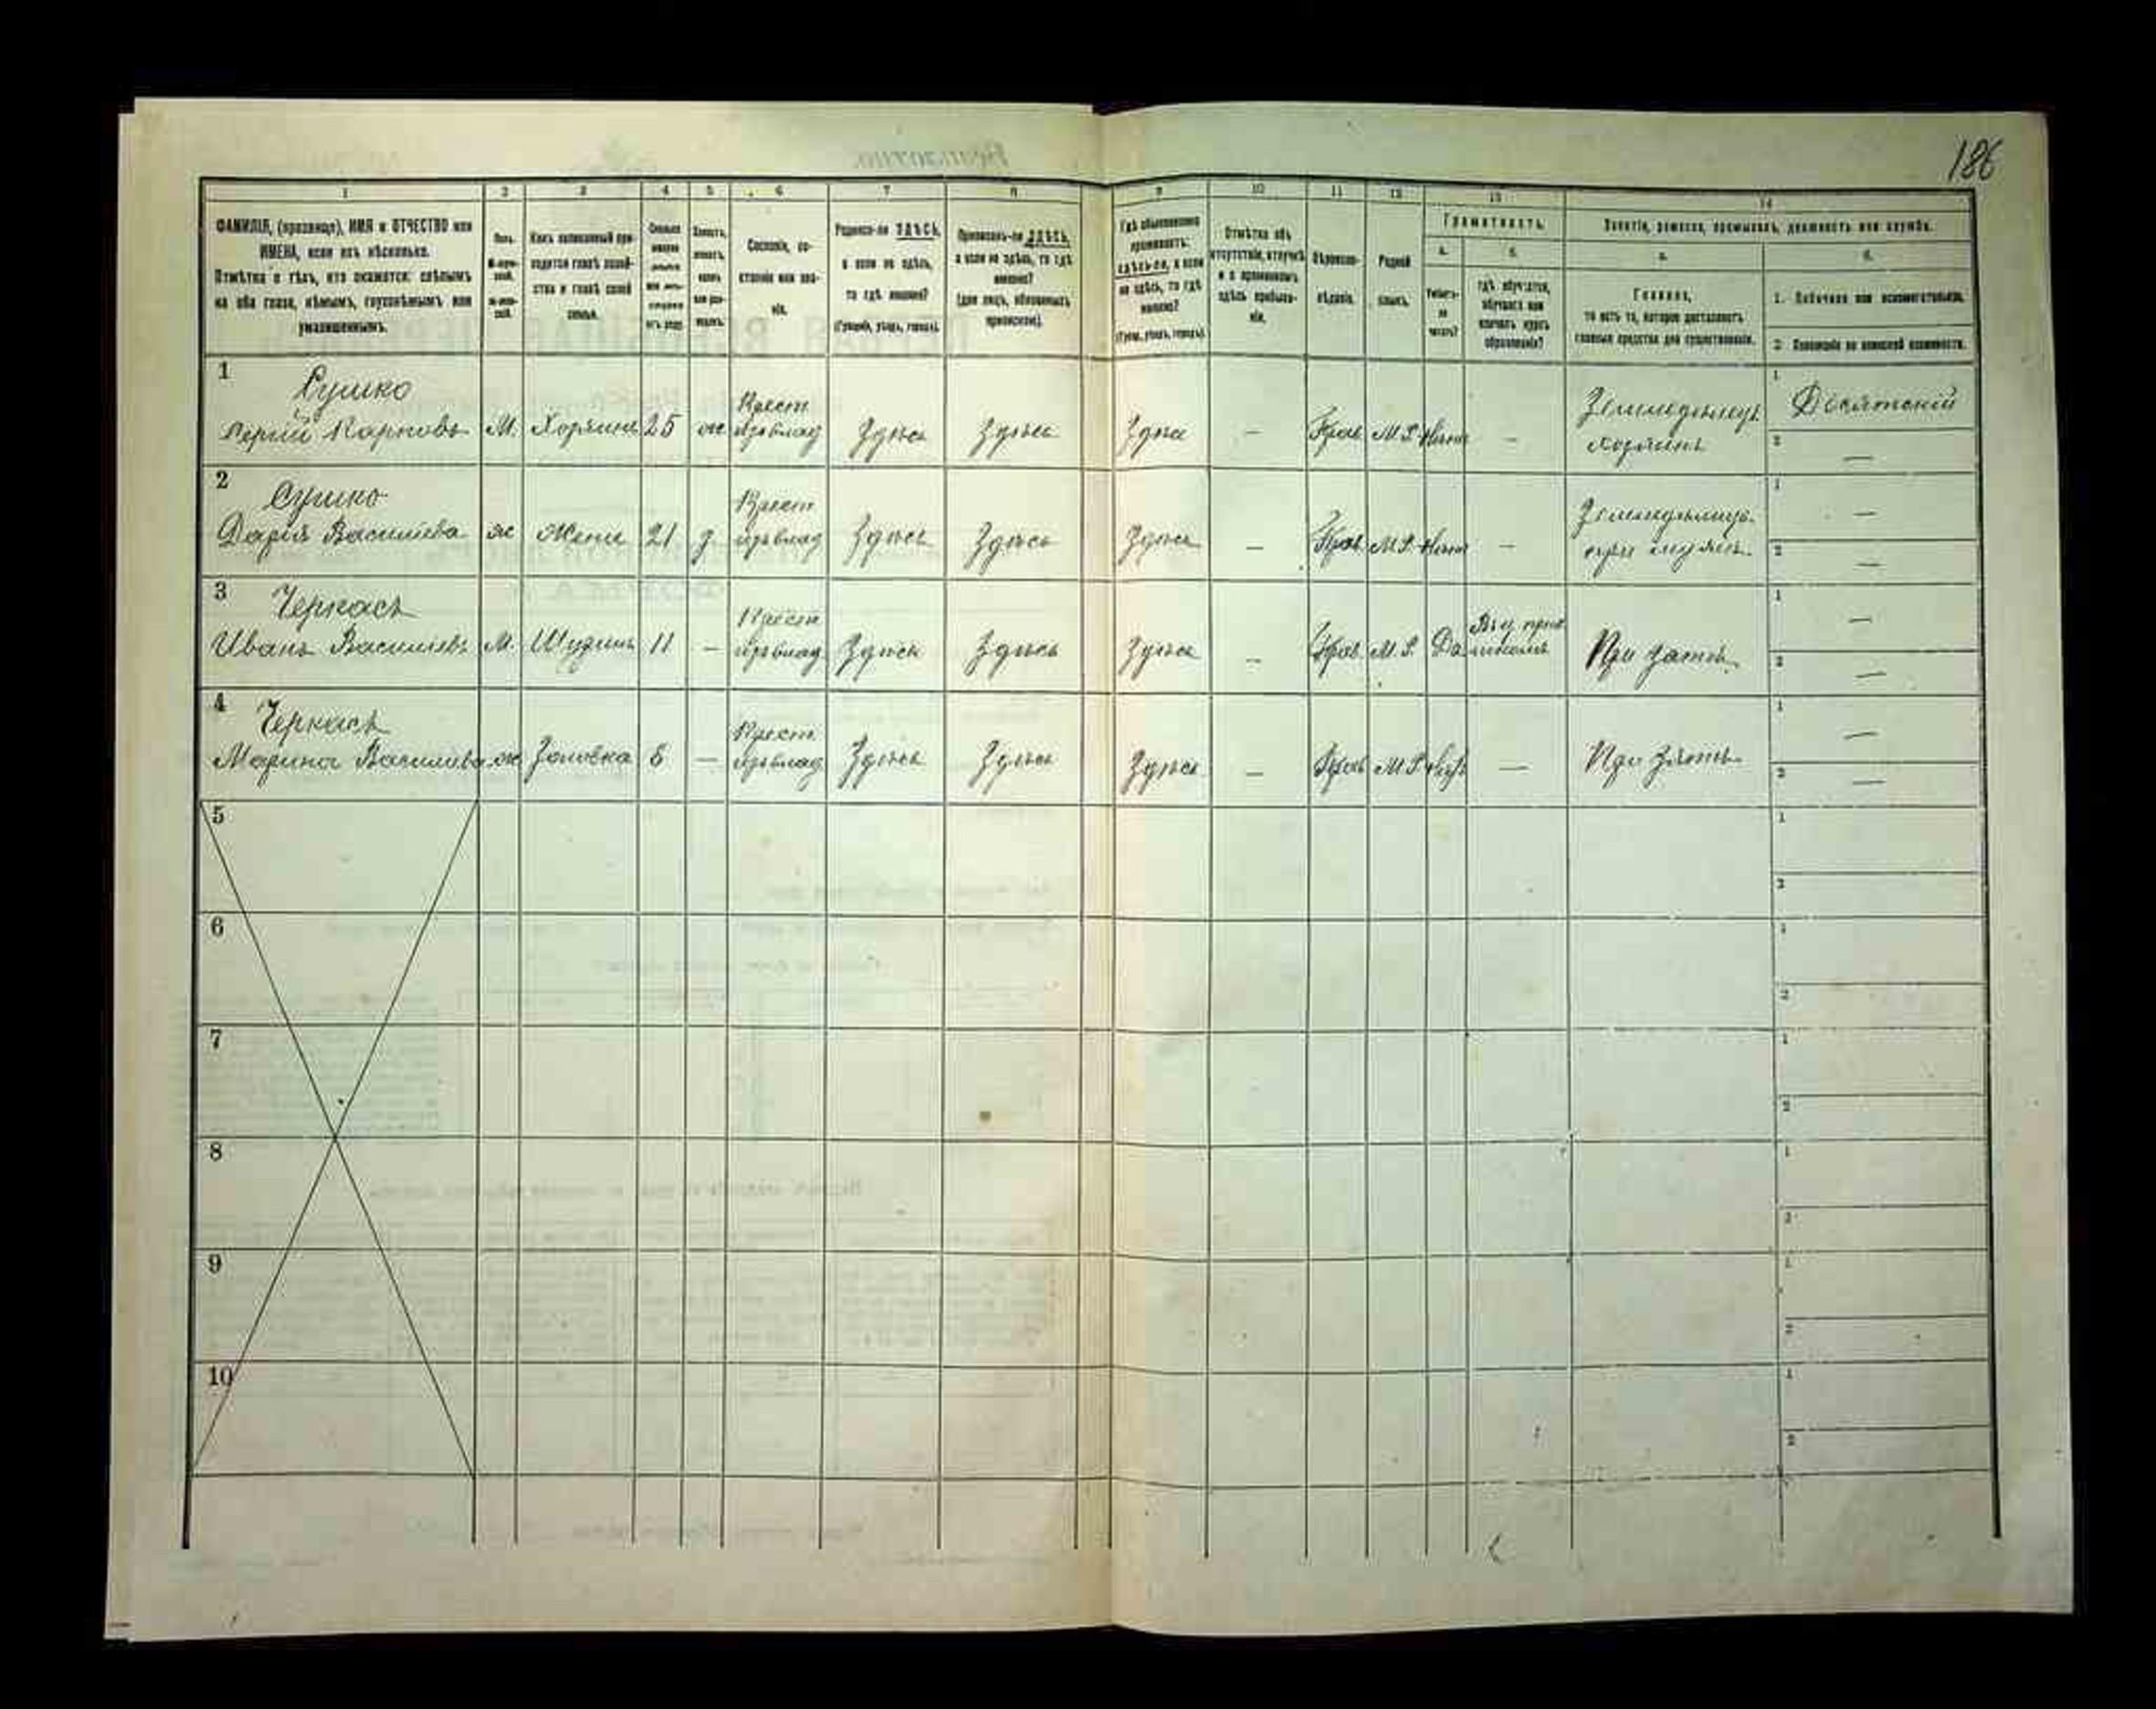 186
1 2 3 4 5 6 7 8 9 10 11 12 13 14
ФАМИЛІЯ, (прозвище), ИМЯ и ОТЧЕСТВО или
ИМЕНА, если ихъ нѣсколько.
Отмѣтка о тѣхъ, кто окажется: слѣпымъ
на оба глаза, нѣмымъ, глухонѣмымъ или
умалишеннымъ.
Полъ.
Какъ записанный при-
ходится главѣ хозяй-
ства и главѣ своей
семьи.
Сословіе, со-
стояніе или зва-
ніе.
Родился-ли ЗДѢСЬ,
а если не здѣсь,
то гдѣ именно?
(Губернія, уѣздъ, городъ).
Приписанъ-ли ЗДѢСЬ,
а если не здѣсь, то гдѣ
именно?
(для лицъ, обязанныхъ
припискою).
Гдѣ обыкновенно
проживаетъ:
здѣсь-ли, а если
не здѣсь, то гдѣ
именно?
(Губер., уѣздъ, городъ).
Отмѣтка объ
отсутствіи, отлучкѣ
и о временномъ
здѣсь пребыва-
ніи.
Вѣроиспо-
вѣданіе.
Родной
языкъ.
Грамотность.
а. б.
Умѣетъ-
ли
читать?
гдѣ обучается,
обучался или
кончилъ курсъ
образованія?
Занятіе, ремесло, промыселъ, должность или служба.
а. б.
Главное,
то есть то, которое доставляетъ
главныя средства для существованія.
1. Побочное или вспомогательное.
2. Положеніе по воинской повинности.
1 Сушко
Сергій Карповъ М. Хозяинъ 25 ж Крест. Здѣсь Здѣсь Здѣсь — Прав М.Р. —
Земледѣлецъ
хозяинъ
1 Десятскій
2 —
2 Сушко
Дарія Василіева ж Жена 21 Крест. Здѣсь Здѣсь Здѣсь — Прав М.Р. —
при мужѣ
1 —
2 —
3 Черкасъ
Иванъ Василіевъ М. Шуринъ 11 — Крест. Здѣсь Здѣсь Здѣсь — Прав. М.Р. Да
При зятѣ
1 —
2 —
4 Черкасъ
Марина Василіева ж Золовка 8 — Крест. Здѣсь Здѣсь Здѣсь — Прав М.Р. —
При зятѣ
1 —
2 —
5 1
2
6 1
2
7 1
2
8 1
2
9 1
2
10 1
2